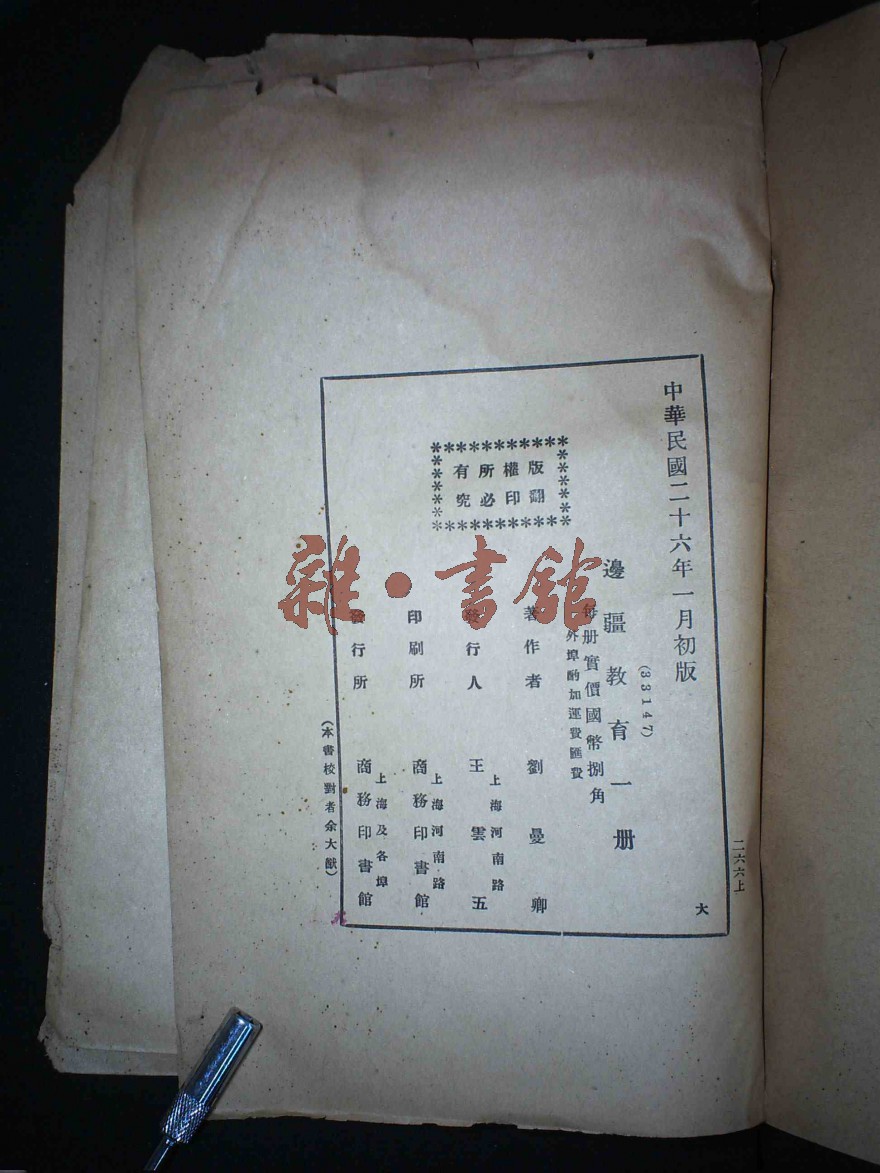 中華民國二十六年一月初版
(33147)
邊疆教育一册
每册實價國幣捌角
外埠酌加運費匯費
版權所有
翻印必究
著作者 劉曼卿
發行人 王雲五
上海河南路
印刷所 商務印書館
上海河南路
發行所 商務印書館
上海及各埠
(本書校對者余大猷)
二六六上
大
雜·書館